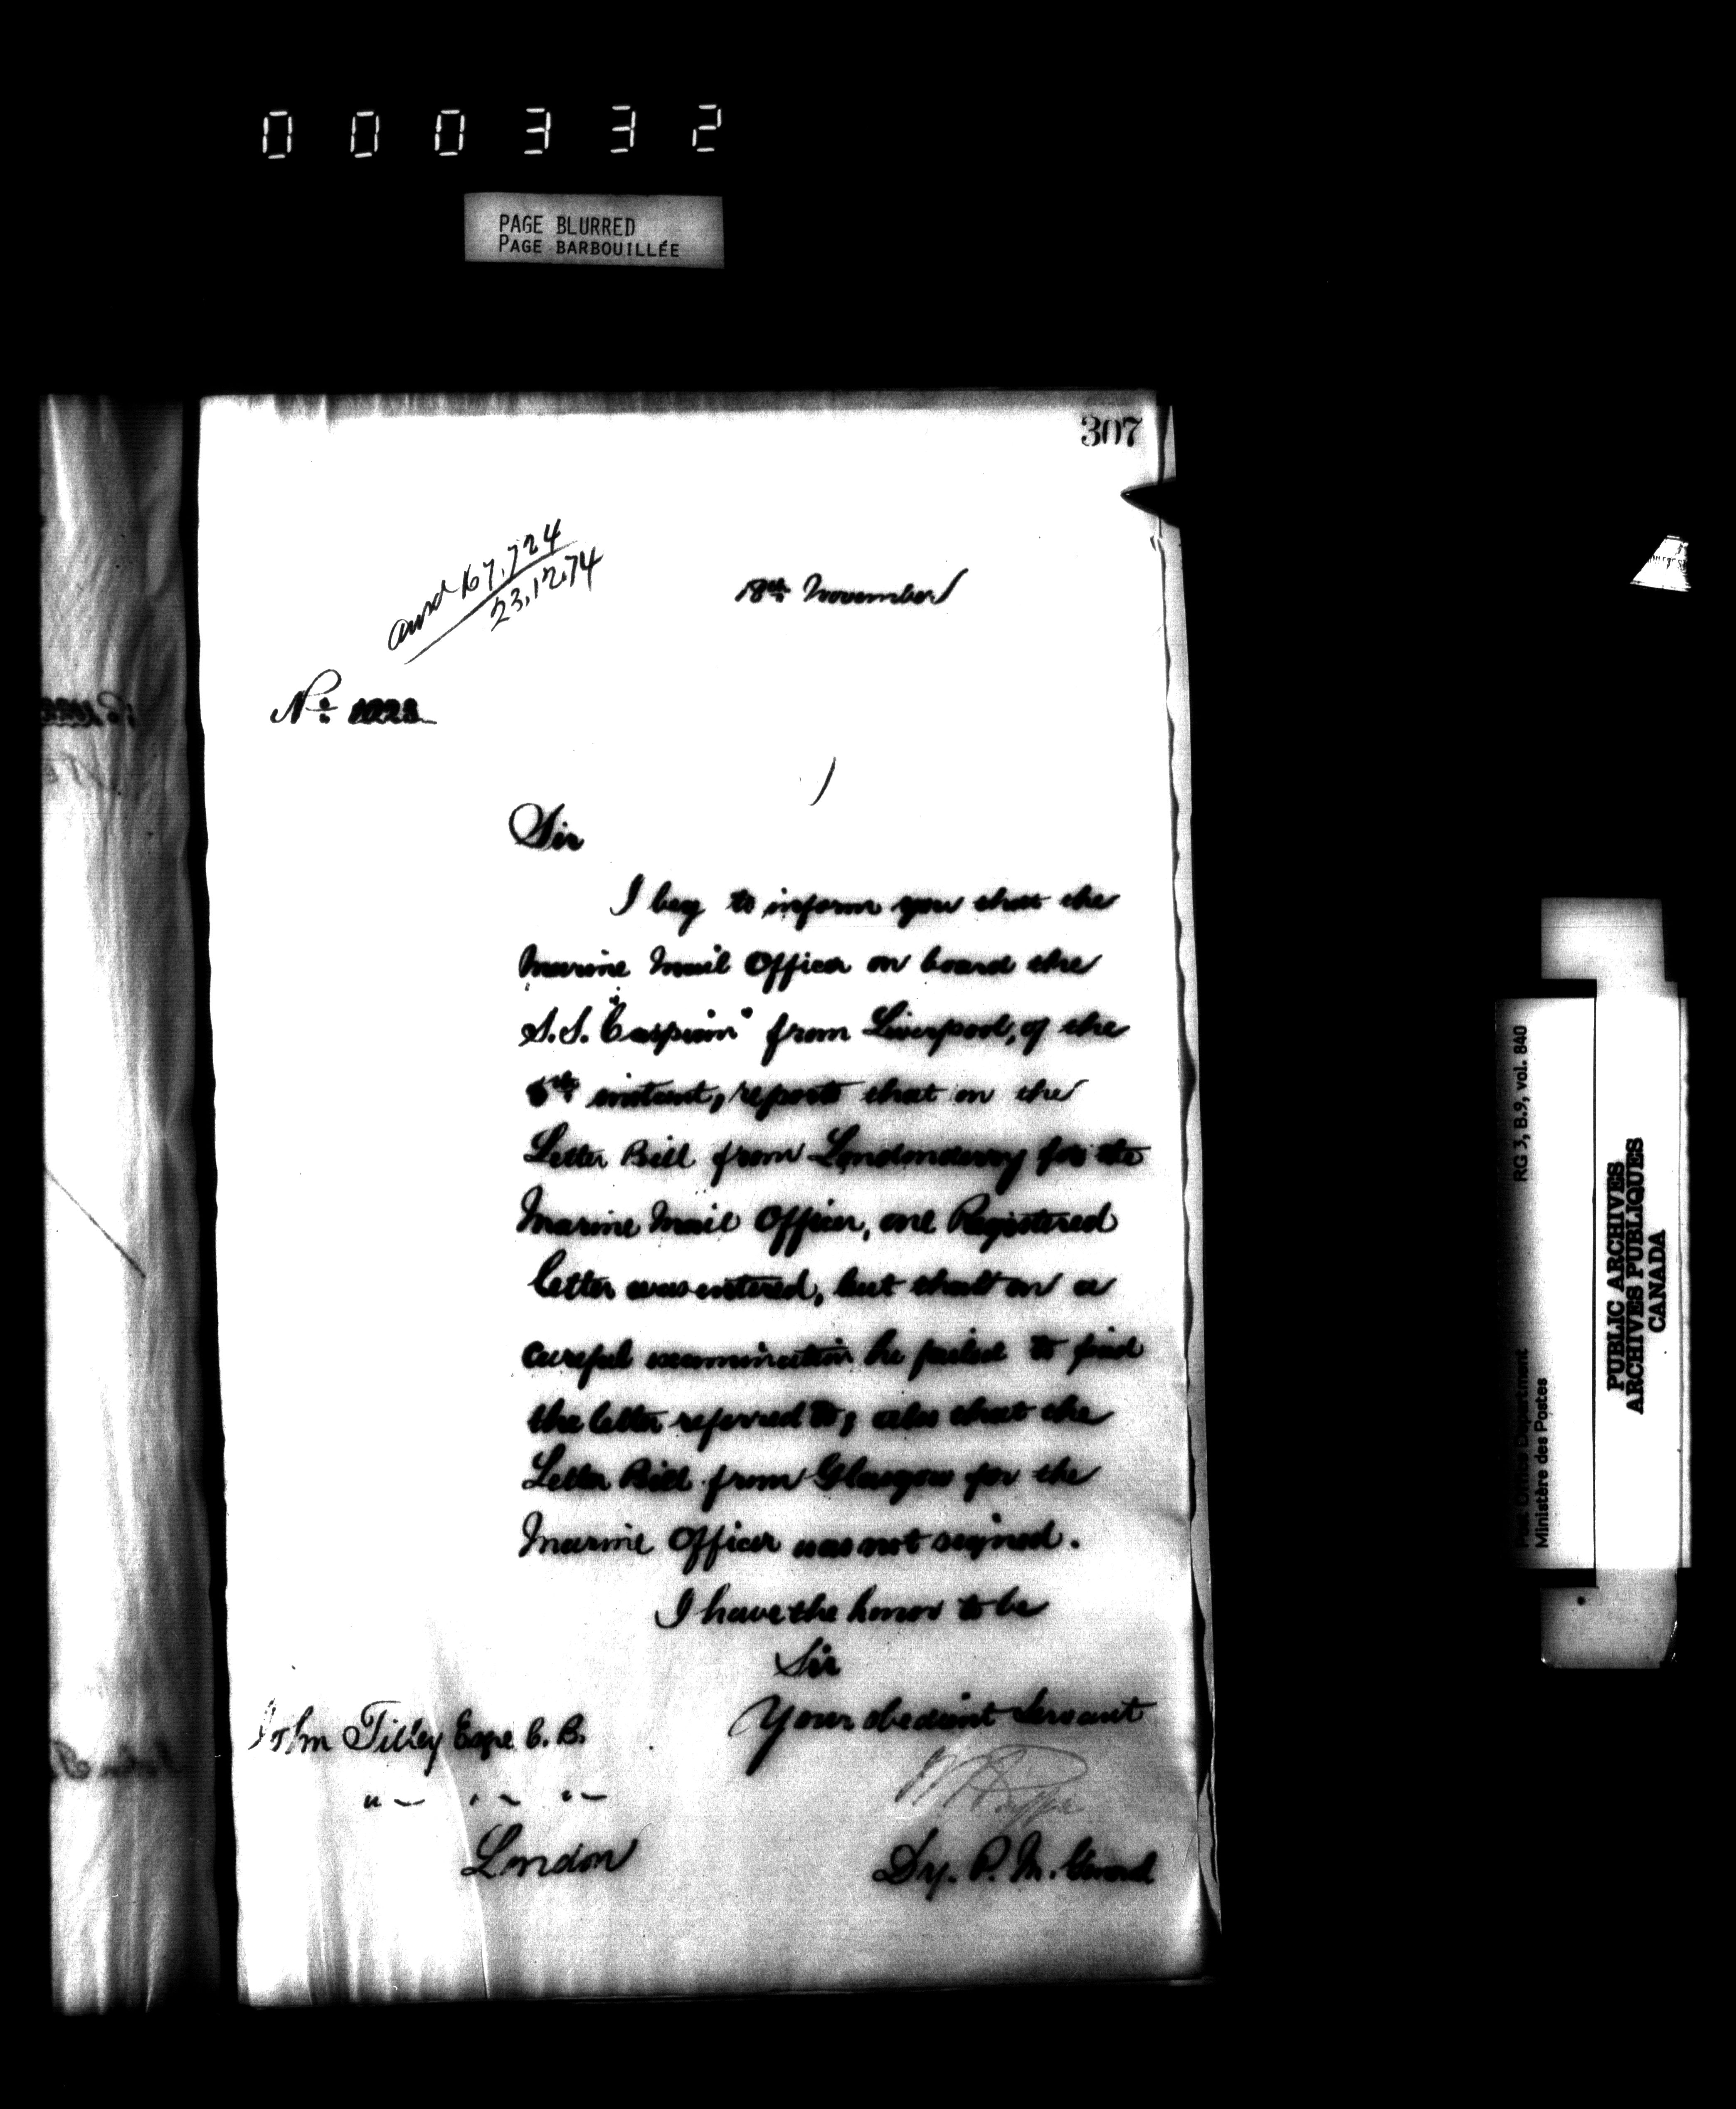 000332
PAGE BLURRED
PAGE BARBOUILLÉE
307
ansd 67,724
23,12,74
18th November
No. 1023
Sir
I beg to inform you that the
Marine Mail Officer on board the
S.S. "Caspian" from Liverpool, of the
5th instant, reports that on the
Letter Bill from Londonderry for the
Marine Mail Officer, one Registered
letter was entered, but that on a
careful examination he failed to find
the letter referred to, also that the
Letter Bill from Glasgow for the
Marine Officer was not signed.
I have the honor to be
Sir
Your obedient Servant
John Tilley Esqre C.B.
" " "
London
Dy. P. M. General
RG 3, B.9, vol. 840
Post Office Department
Ministère des Postes
PUBLIC ARCHIVES
ARCHIVES PUBLIQUES
CANADA